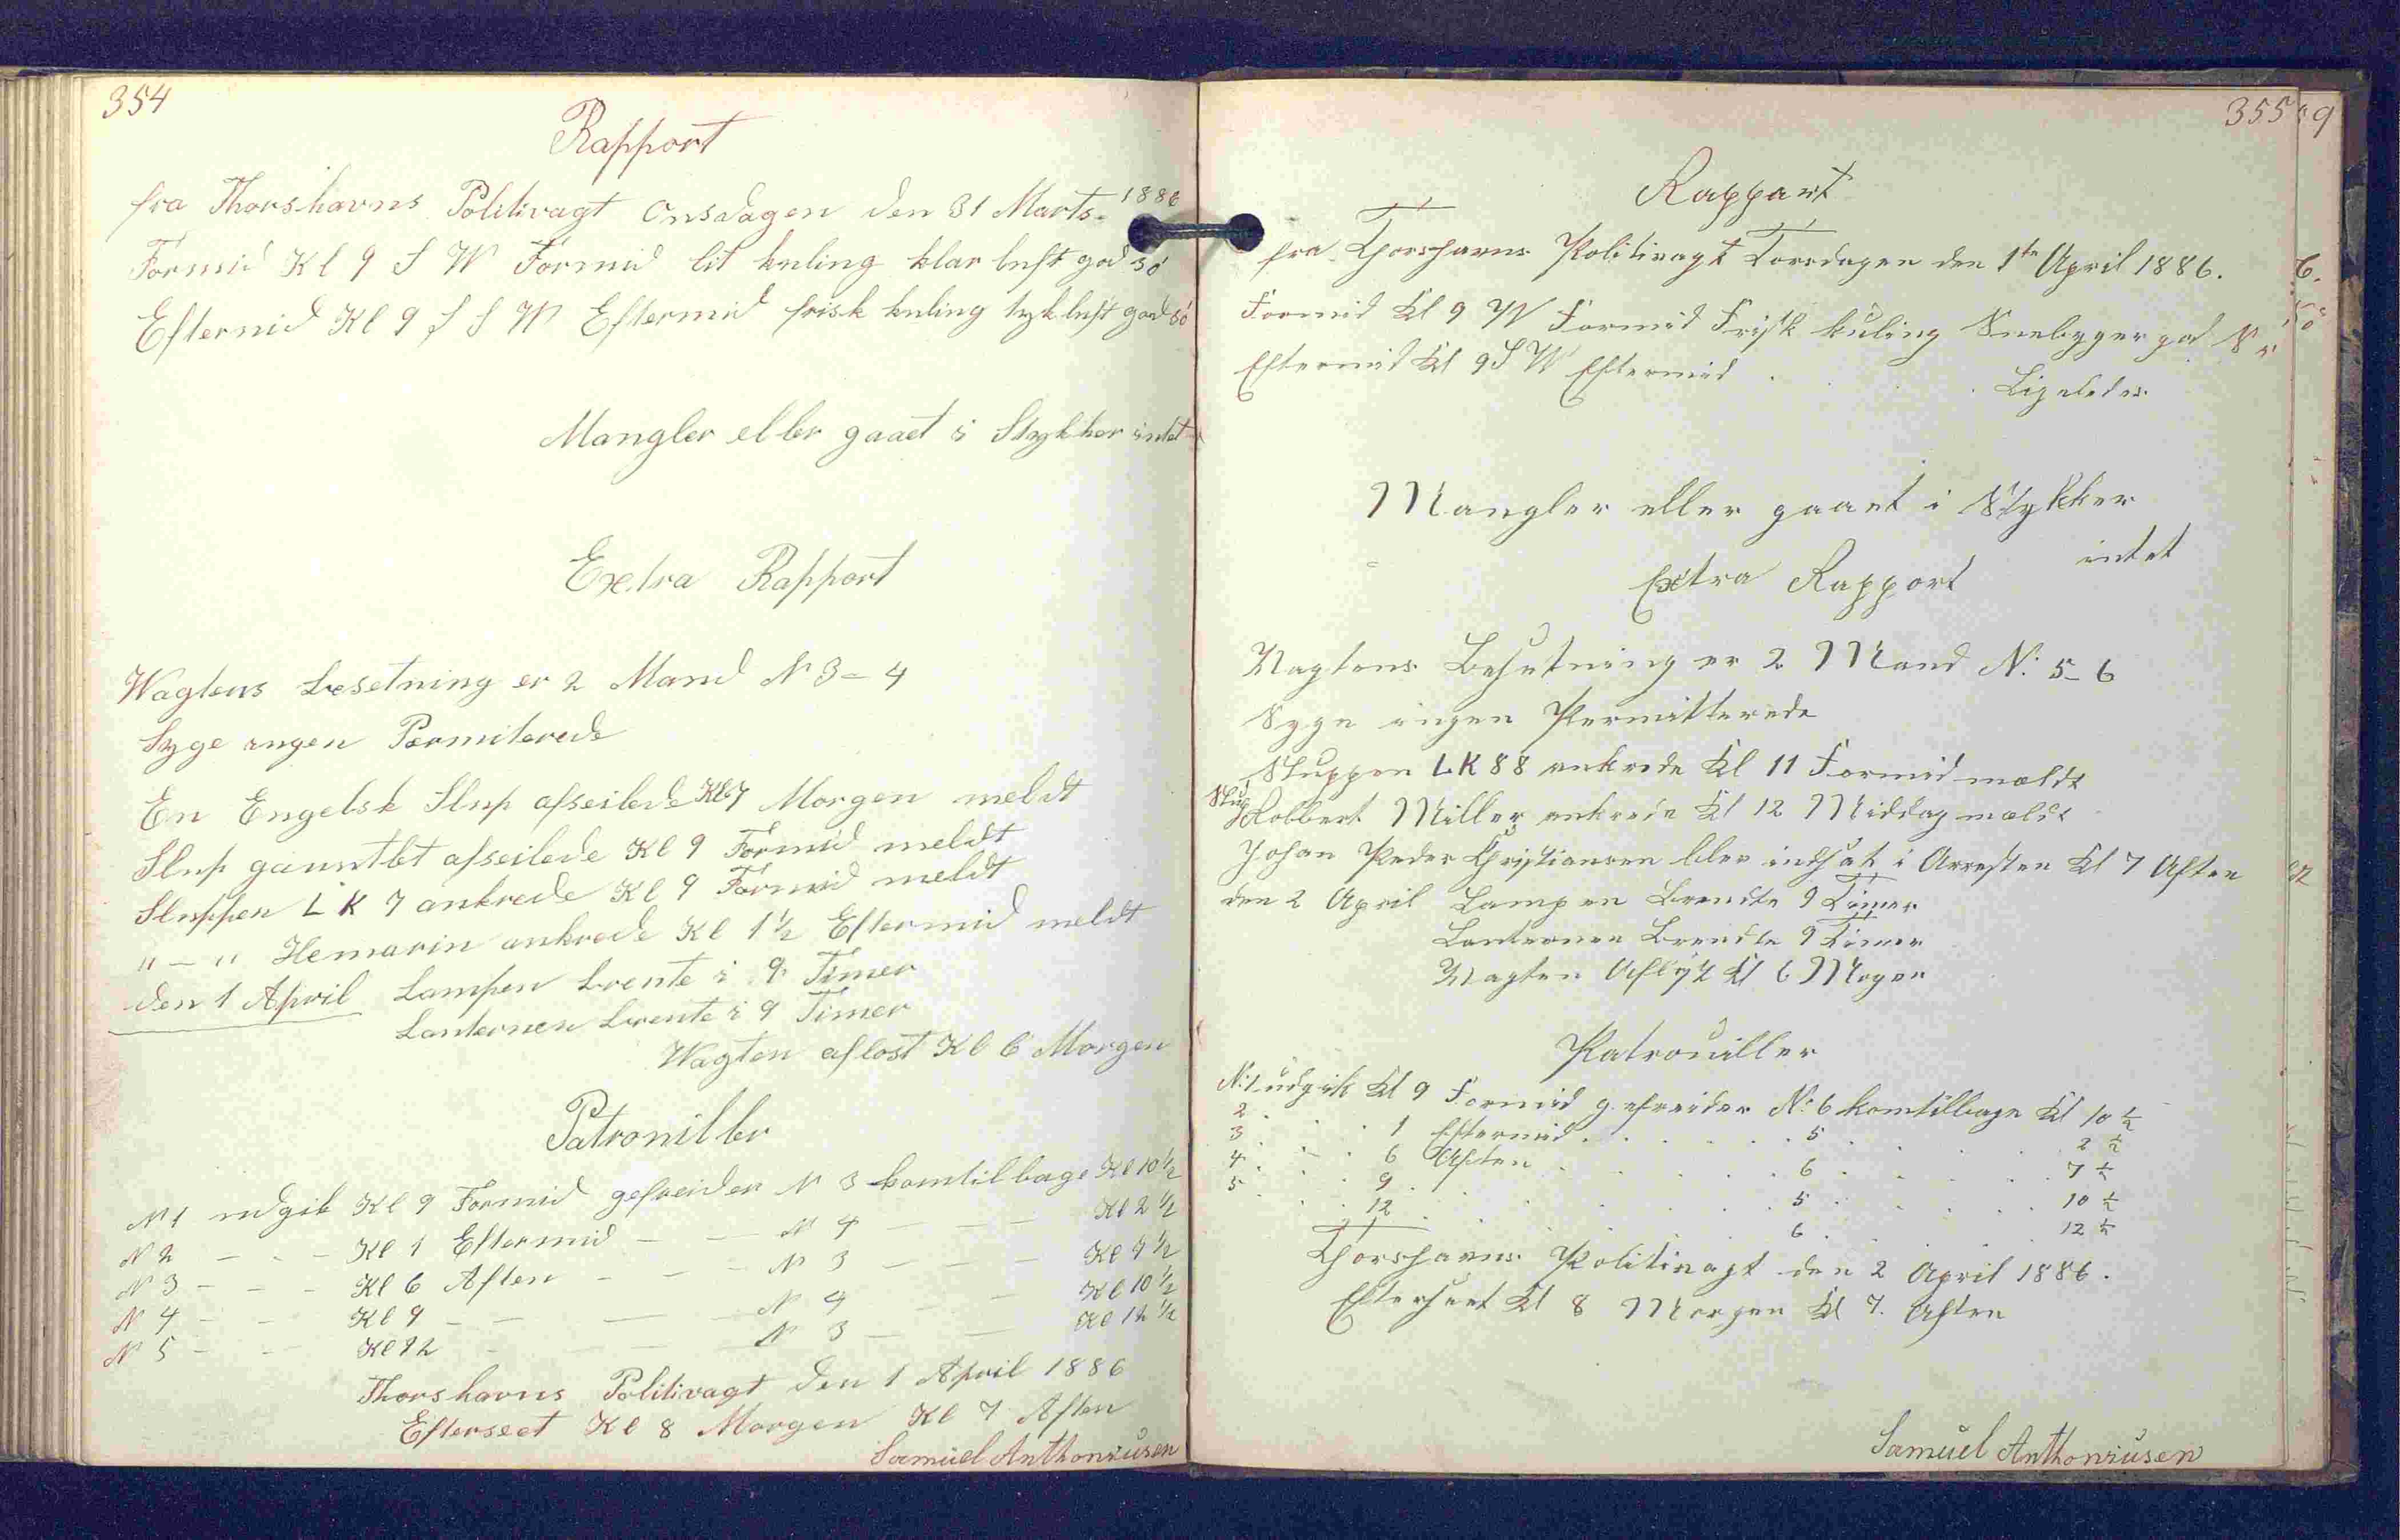 354
Rapport
fra Thorshavns Politivagt Onsdagen den 31 Marts 1886
Formid Kl 9 S W Formid lit kuling klar luft god sö
Eftermid Kl 9 S S W Eftermid frisk kuling tyk luft god sö
Mangler eller gaaet i Stykker intet
Extra Rapport
Wagtens besetning er 2 Mand N 3 - 4
Syge ingen Permiterede
En Engelsk Slup afseilede Kl 7 Morgen meldt
Slup gauntlet afseilede Kl 9 Formid meldt
Sluppen L K 7 ankrede Kl 9 Formid meldt
" - " Hemarin ankrede Kl 1½ Eftermid meldt
den 1 April Lampen brente i 9 Timer
Lanternen brente i 9 Timer
Wagten aflost Kl 6 Morgen
Patrouiller
N 1 udgik Kl 9 Formid gefreider N 3 komtilbage Kl 10½
N 2 - - - Kl 1 Eftermid - - N 4 - - - Kl 2½
N 3 - - - Kl 6 Aften - - - N 3 - - - Kl 7½
N 4 - - Kl 9 - - - N 4 - - Kl 10½
N 5 - - - Kl 12 - - - N 3 - - Kl 12½
Thorshavns Politivagt den 1 April 1886
Efterseet Kl 8 Morgen Kl 7 Aften
Samuel Anthoniusen
355
9
Rappart
fra Thorshavns Politivagt Torsdagen den 1te April 1886.
Formid Kl 9 W Formid Frisk kuling Snebyger god Sö
Eftermid Kl 9 S W Eftermid . . . Ligeledes
Mangler eller gaaet i Stykker
intet
Extra Rapport
Vagtens Besetning er 2 Mand N: 5 - 6
Syge ingen Permitterede
Sluppen LK 88 ankrede Kl 11 Formid meldt
Slup Robbert Miller ankrede Kl 12 Middag meldt
Johan Peder Christiansen blev indsat i Arresten Kl 7 Aften
den 2 April Lampen Brendte 9 Timer
Lanternen Brendte 9 Timer
Vagten Afløst Kl 6 Mogen
Patrouiller
N: 1 udgik Kl 9 Formid gefreider N: 6 komtilbage Kl 10½
2 . . . 1 Eftermid . . . 5 . . . 2½
3 . . . 6 Aften . . . 6 . . . 7½
4 . . . 9 . . . 5 . . . 10½
5 . . . 12 . . . 6 . . . 12½
Thorshavns Politivagt den 2 April 1886.
Efterseet Kl 8 Morgen Kl 7. Aften
Samuel Anthoniusen